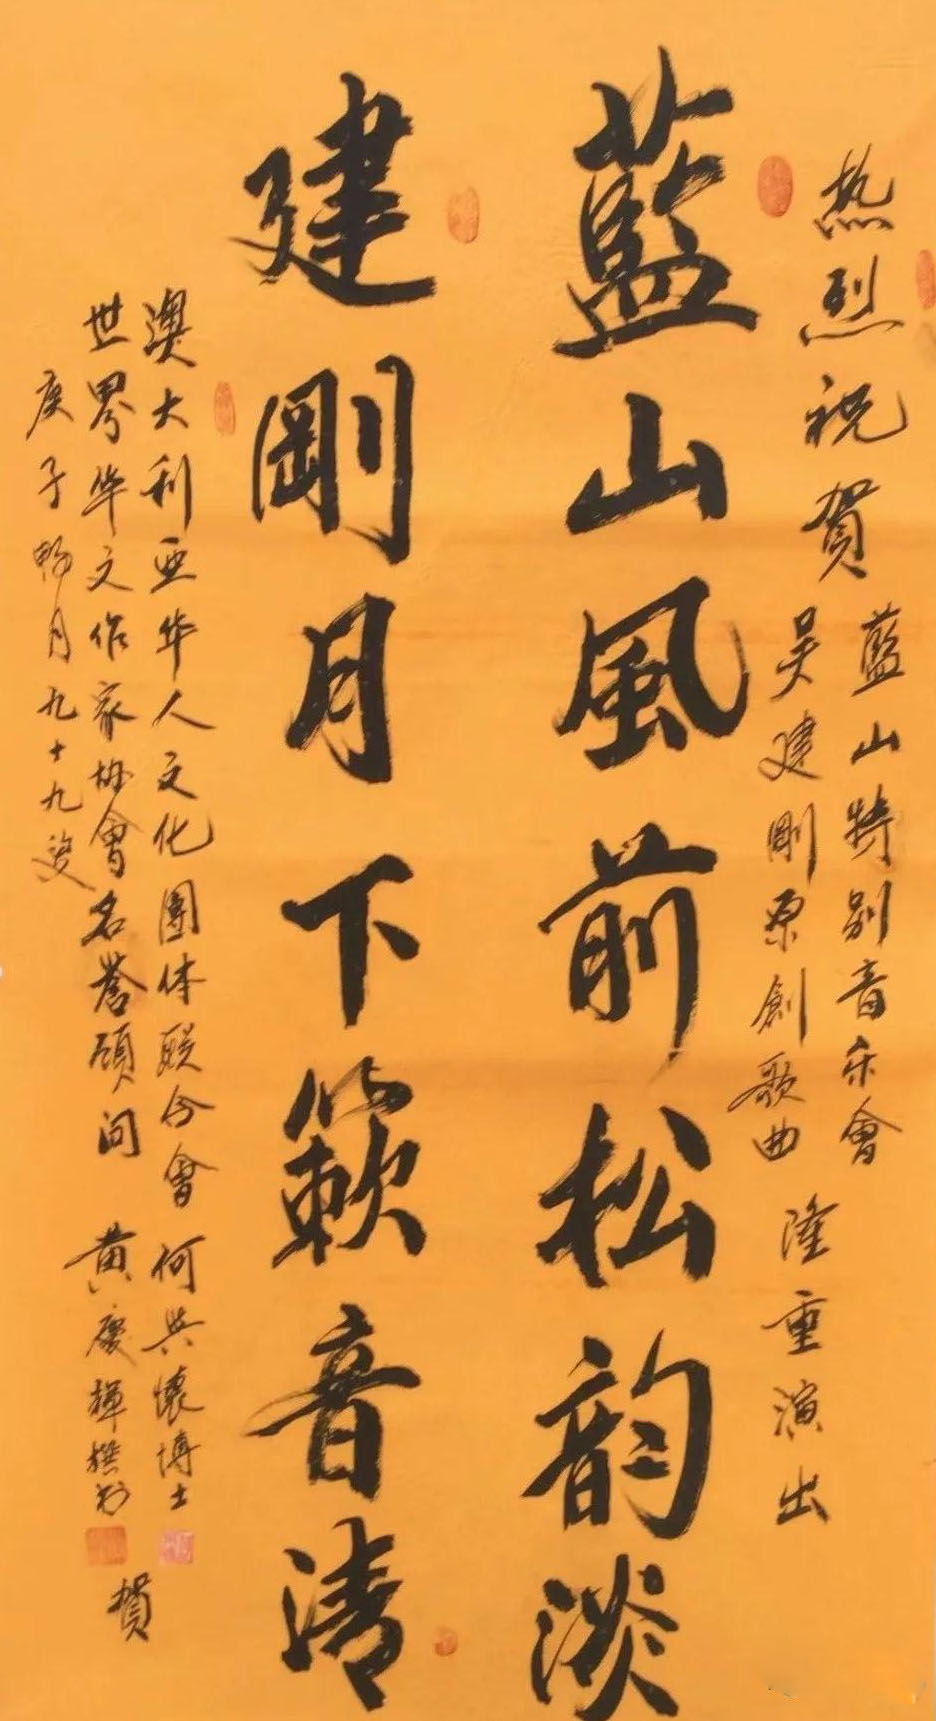 热烈祝贺
藍山特别音乐會
吴建剛原創歌曲
隆重演出
藍山風前松韵淡
建剛月下籁音清
澳大利亚华人文化團体联合會 何與懷博士
世界华文作家协會名誉顾问 黄慶輝撰书
贺
庚子畅月九十九叟